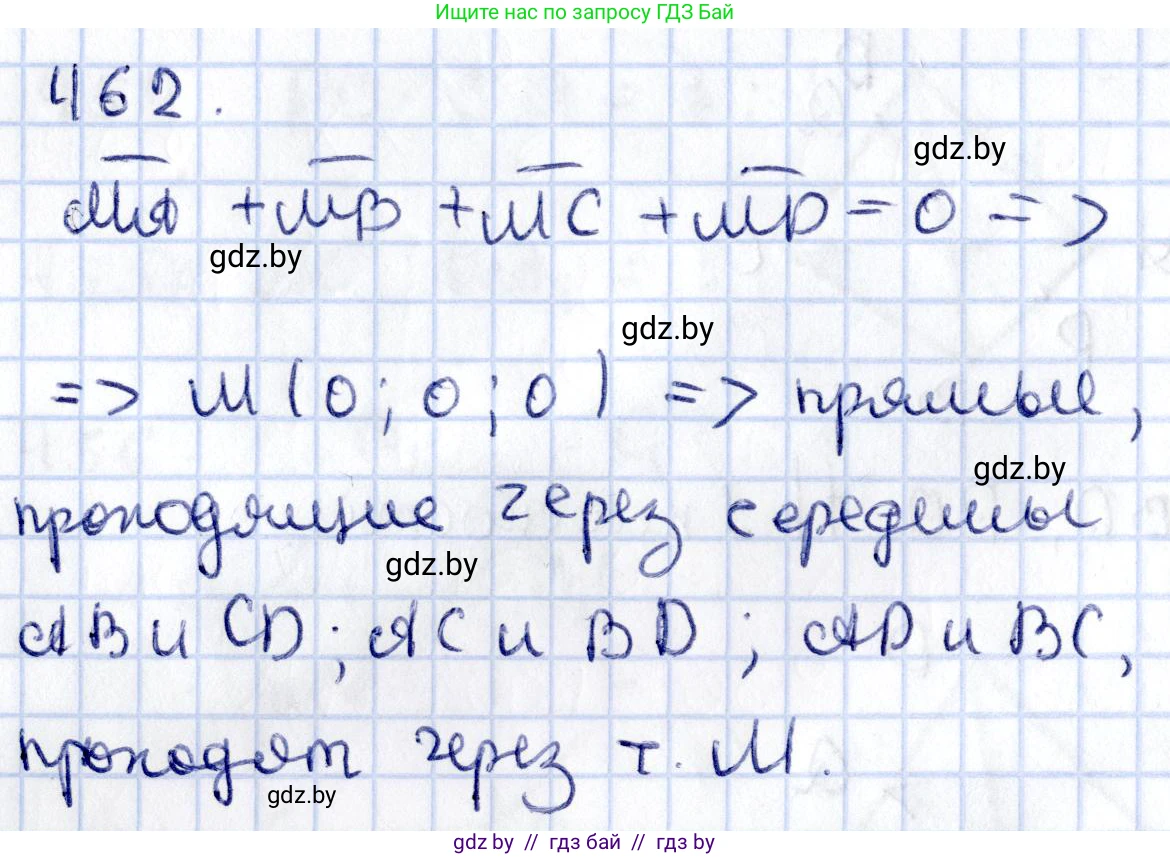 Ищите нас по запросу ГДЗ Бай
462.
gdz.by
MA + MB + MC + MD = 0 =>
gdz.by
gdz.by
=> M (0; 0; 0) => прямые,
gdz.by
проходящие через середины
gdz.by
AB и CD; AC и BD; AD и BC,
проходят через т. M.
gdz.by
gdz.by // гдз бай // гдз by